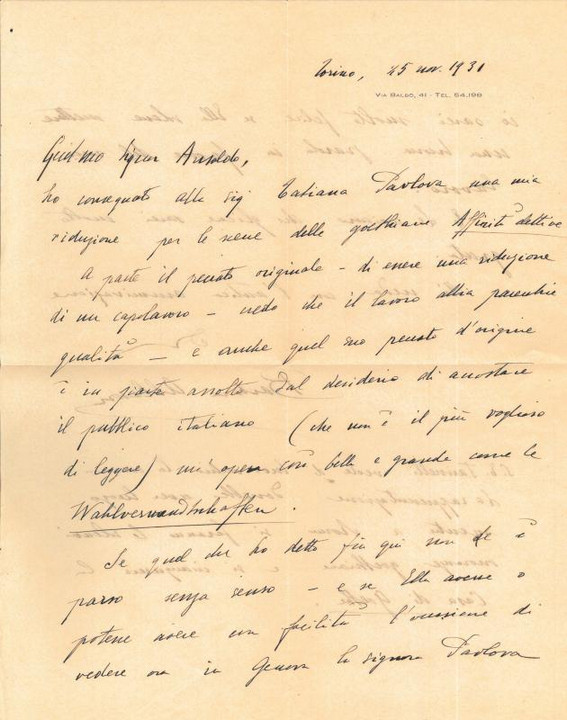 Torino, 25 nov. 1931
VIA BALBO, 41 - TEL. 54.198
Gent.mo Signor Ansaldo,
ho consegnato alla Sig Tatiana Pavlova una mia
riduzione per le scene delle goethiane Affinità elettive
A parte il peccato originale – di essere una riduzione
di un capolavoro – credo che il lavoro abbia parecchie
qualità – e anche quel suo peccato d'origine
è in parte assolto dal desiderio di accostare
il pubblico italiano (che non è il più voglioso
di leggere) un'opera così bella e grande come le
Wahlverwandtschaften.
Se quel che ho detto fin qui non Le è
parso senza senso – e se Ella avesse o
potesse avere con facilità l'occasione di
vedere ora in Genova la signora Pavlova